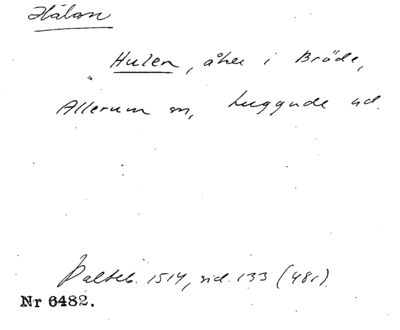 Hålan
Hulen, åker i Bröde,
Allerum sn, Luggude hd.
Paltseb. 1514, sid. 133 (48r)
Nr 6482.